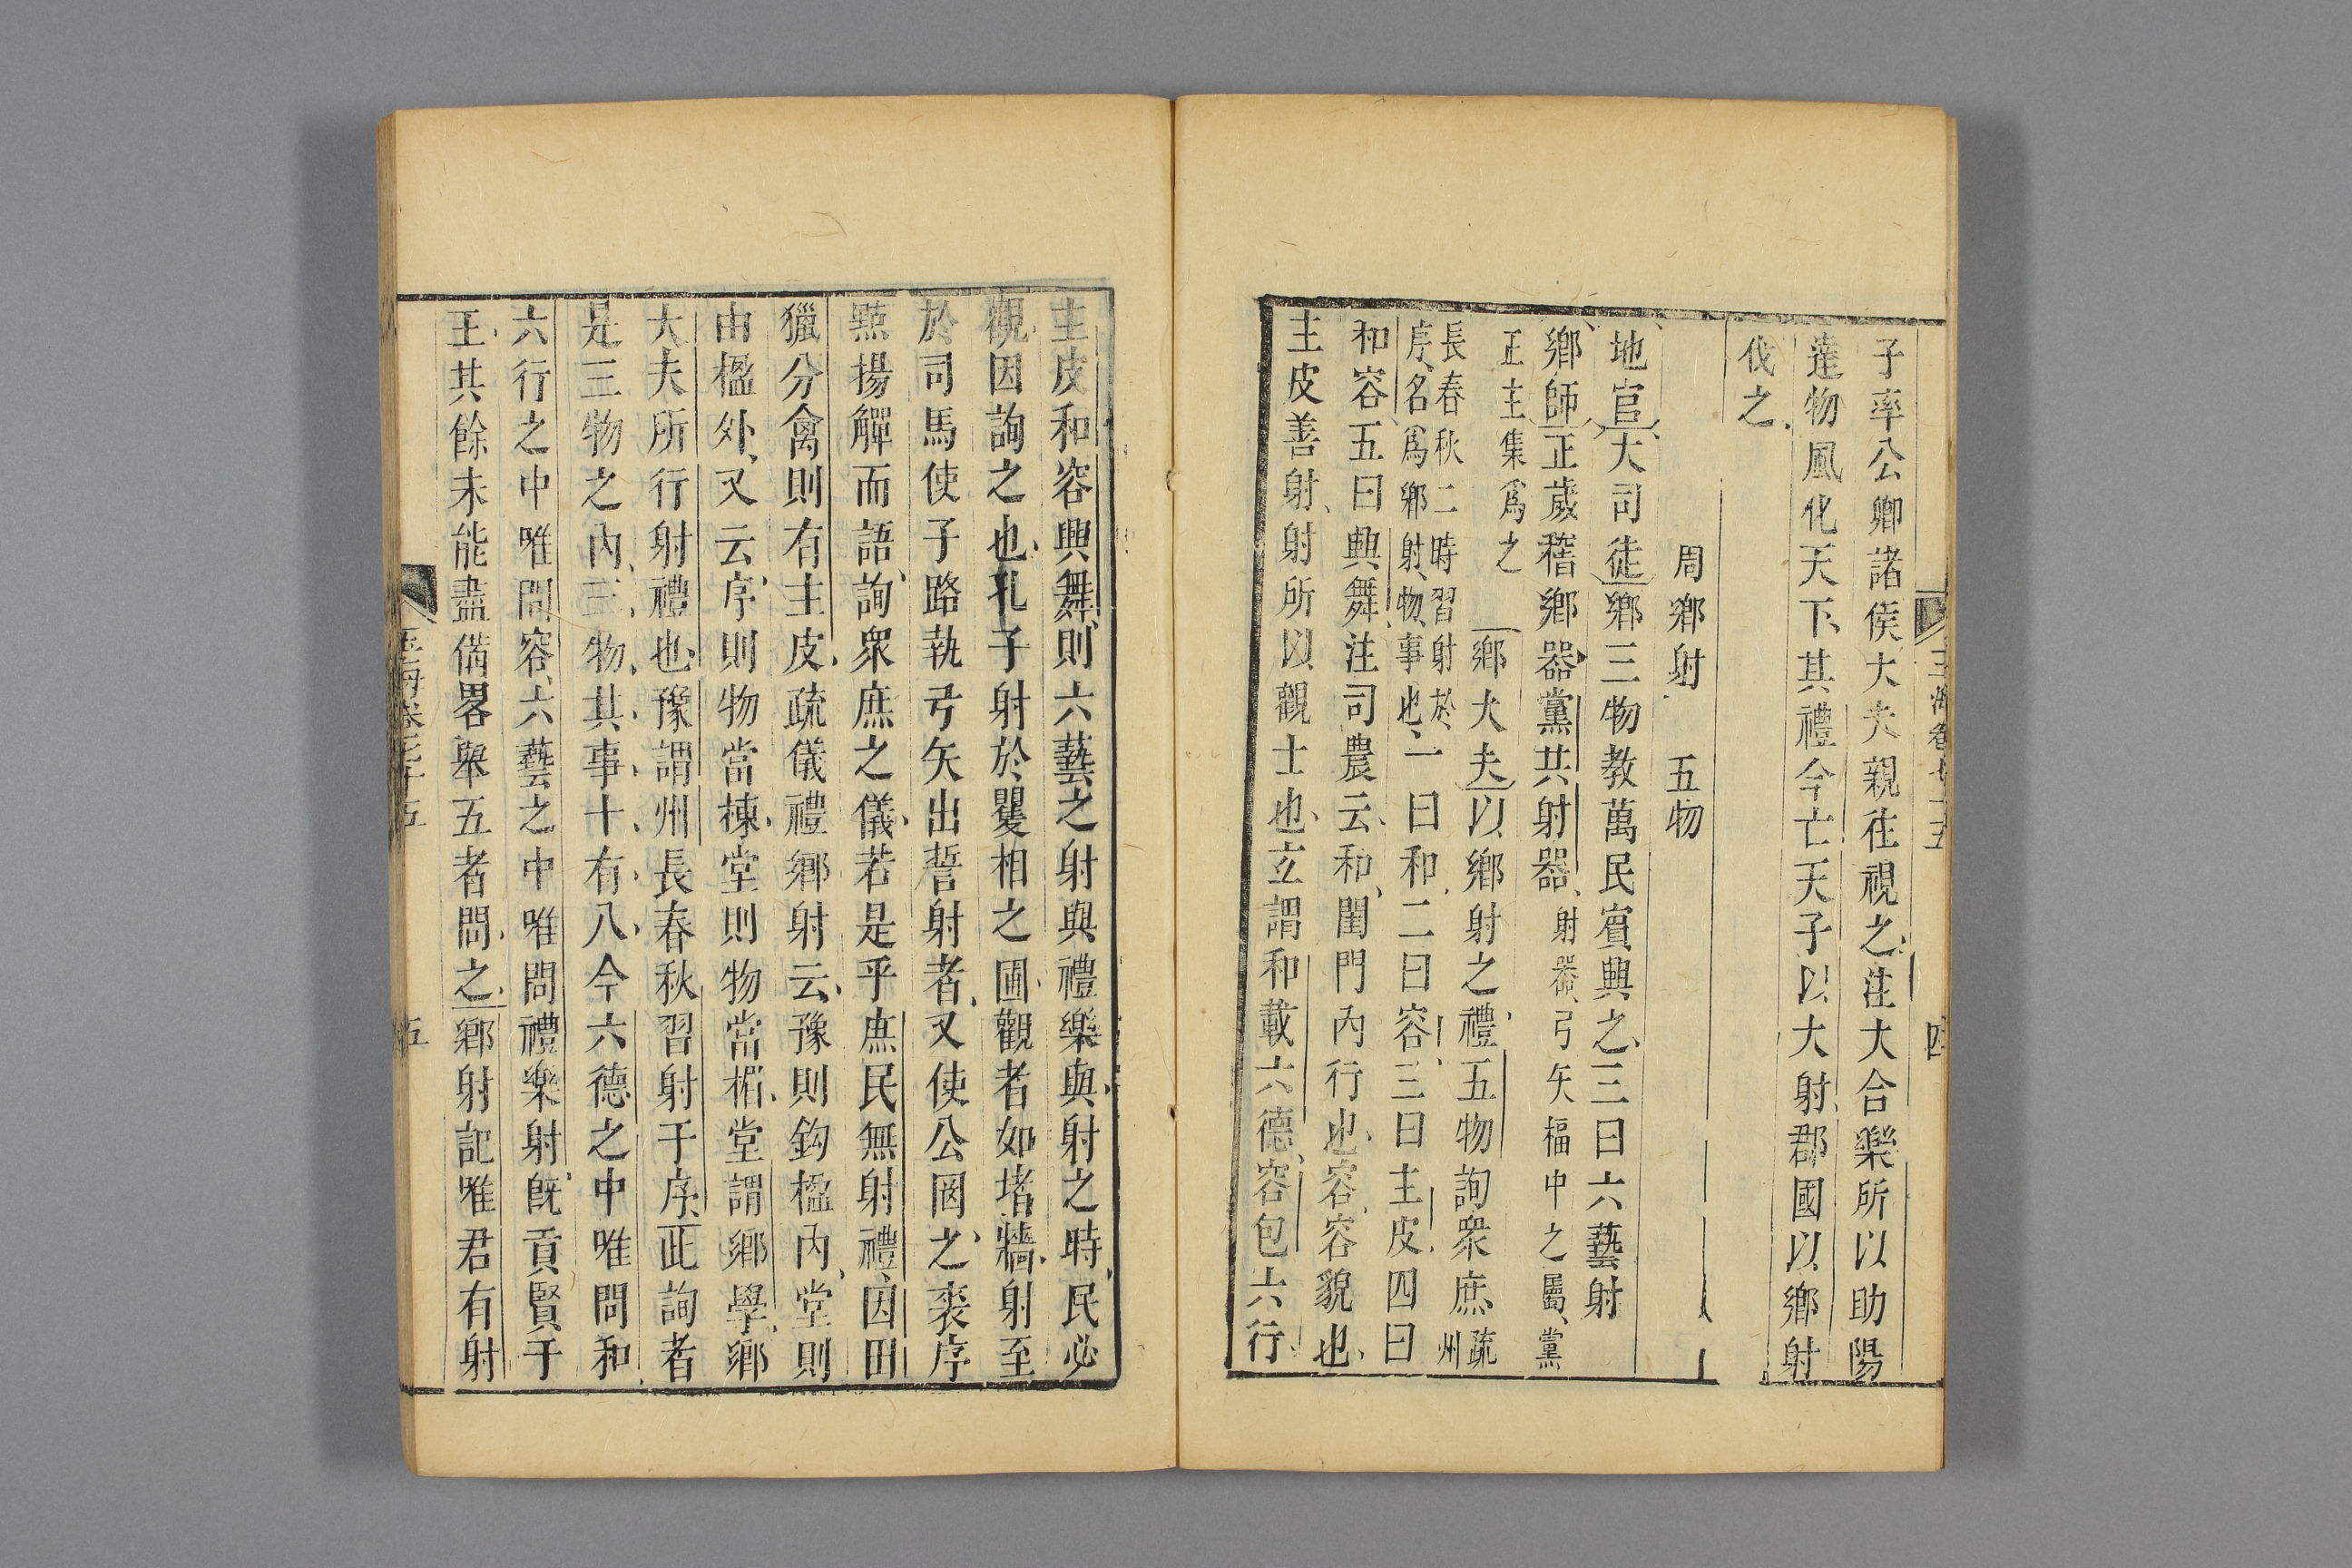 玉海卷七十五
四
子率公卿諸侯大夫親往視之注大合樂所以助陽
達物風化天下其禮今亡天子以大射郡國以鄉射
伐之
周鄉射 五物
地官大司徒鄉三物教萬民賓興之三曰六藝射
鄉師正歲稽鄉器黨共射器射器弓矢楅中之屬黨
正主集爲之
鄉大夫以鄉射之禮五物詢衆庶疏州
長春秋二時習射於
序名爲鄉射物事也一曰和二曰容三曰主皮四曰
和容五曰興舞注司農云和閨門內行也容容貌也
主皮善射射所以觀士也玄謂和載六德容包六行
主皮和容興舞則六藝之射與禮樂與射之時民必
觀因詢之也孔子射於矍相之圃觀者如堵牆射至
於司馬使子路執弓矢出誓射者又使公罔之裘序
㸃揚觶而語詢衆庶之儀若是乎庶民無射禮因田
獵分禽則有主皮疏儀禮鄉射云豫則鈎楹內堂則
由楹外又云序則物當棟堂則物當楣堂謂鄉學鄉
大夫所行射禮也豫謂州長春秋習射于序此詢者
是三物之內三物其事十有八今六德之中唯問和
六行之中唯問容六藝之中唯問禮樂射旣貢賢于
王其餘未能盡備畧舉五者問之鄉射記唯君有射
玉海卷七十五
五